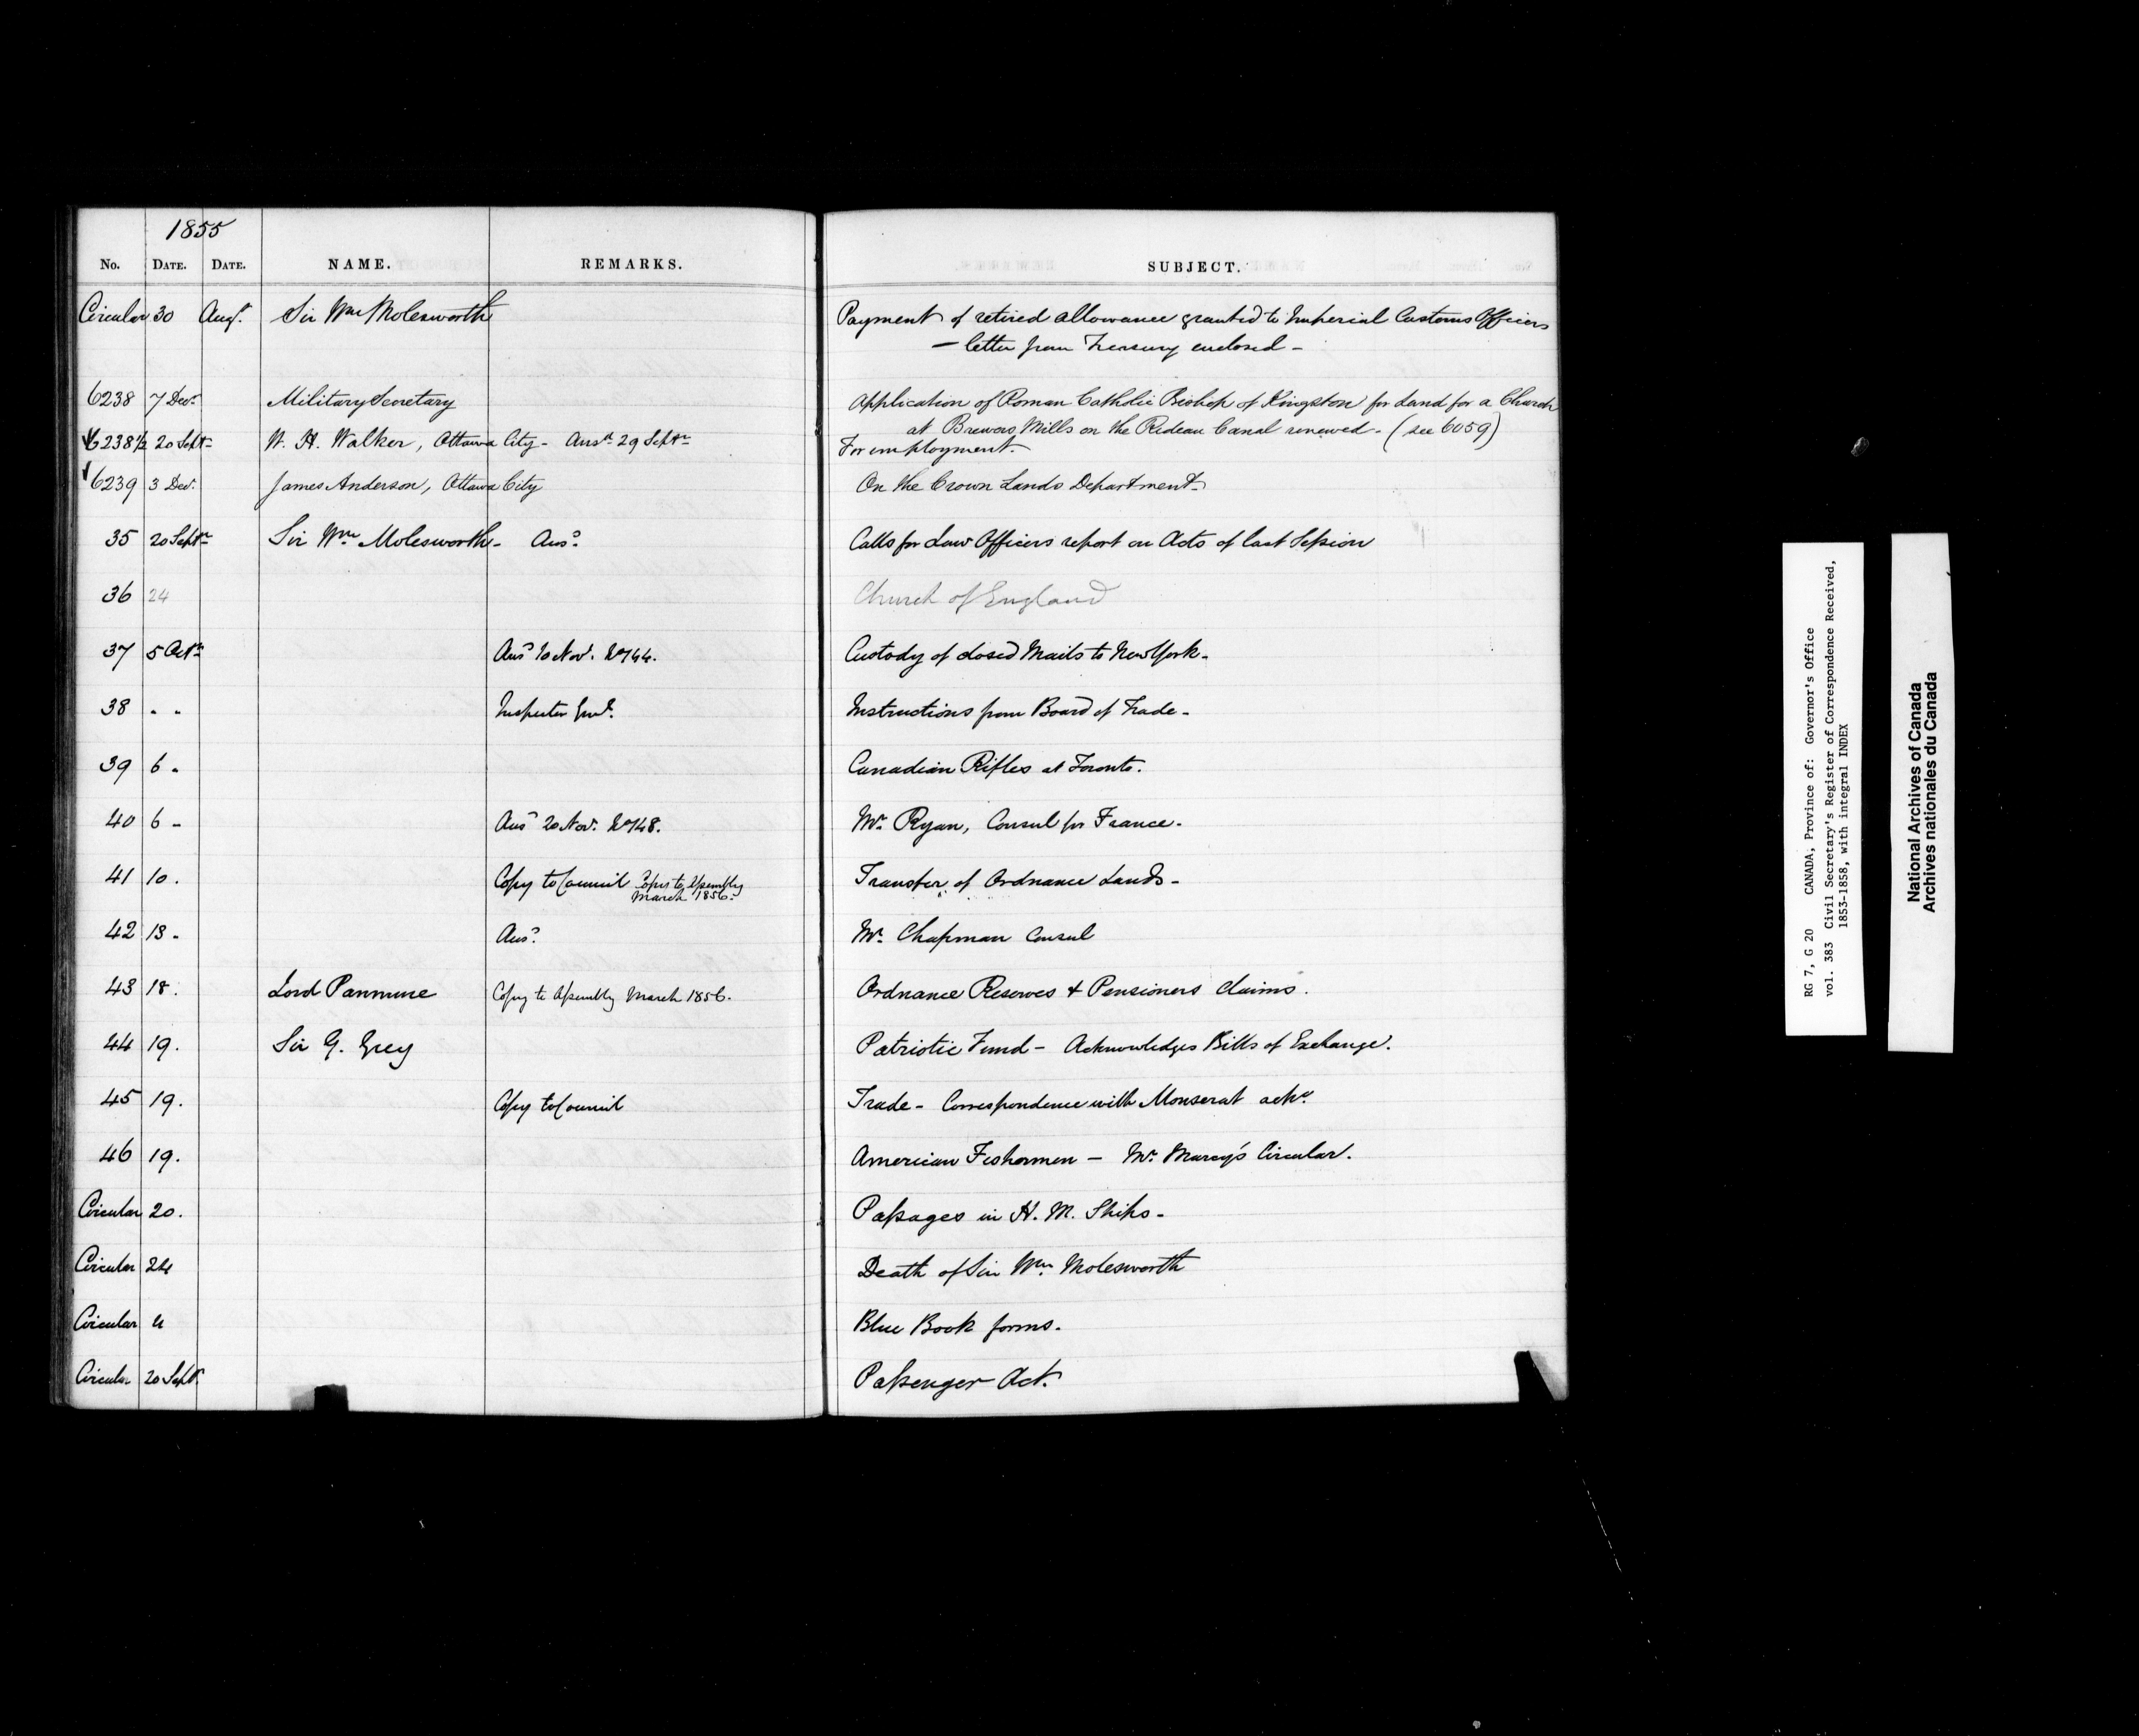 1855
No. DATE. DATE. NAME. REMARKS. SUBJECT.
Circular 30 Augt. Sir Wm Molesworth Payment of retired allowance granted to Imperial Customs Officers
— letter from Treasury enclosed -
6238 7 Decr Military Secretary Application of Roman Catholic Bishop of Kingston for Land for a Church
at Brewers Mills on the Rideau Canal renewed - (see 6059)
6238½ 20 Septr W. H. Walker, Ottawa City - Ansd 29 Septr For employment.
6239 3 Decr. James Anderson, Ottawa City On the Crown Lands Department.
35 20 Septr Sir Wm Molesworth - Ansd. Calls for Law Officers report on Acts of last Session
36 24 Church of England
37 5 Octr Ansd 10 Novr. No 144. Custody of closed Mails to New York -
38 " " Inspector Genl. Instructions from Board of Trade -
39 6 - Canadian Rifles at Toronto.
40 6 - Ansd 20 Novr. No 148. Mr. Ryan, Consul for France -
41 10. Copy to Council Copy to Assembly
March 1856. Transfer of Ordnance Lands -
42 13 - Ansd. Mr. Chapman Consul
43 18. Lord Panmure Copy to Assembly March 1856. Ordnance Reserves & Pensioners Claims.
44 19. Sir G. Grey Patriotic Fund - Acknowledges Bills of Exchange.
45 19. Copy to Council Trade - Correspondence with Monserat ackd.
46 19. American Fishermen — Mr. Marcy's Circular.
Circular 20. Passages in H. M. Ships -
Circular 24 Death of Sir Wm. Molesworth
Circular " Blue Book forms.
Circular 20 Septr. Passenger Act.
RG 7, G 20 CANADA, Province of: Governor's Office
vol. 383 Civil Secretary's Register of Correspondence Received,
1853-1858, with integral INDEX
National Archives of Canada
Archives nationales du Canada